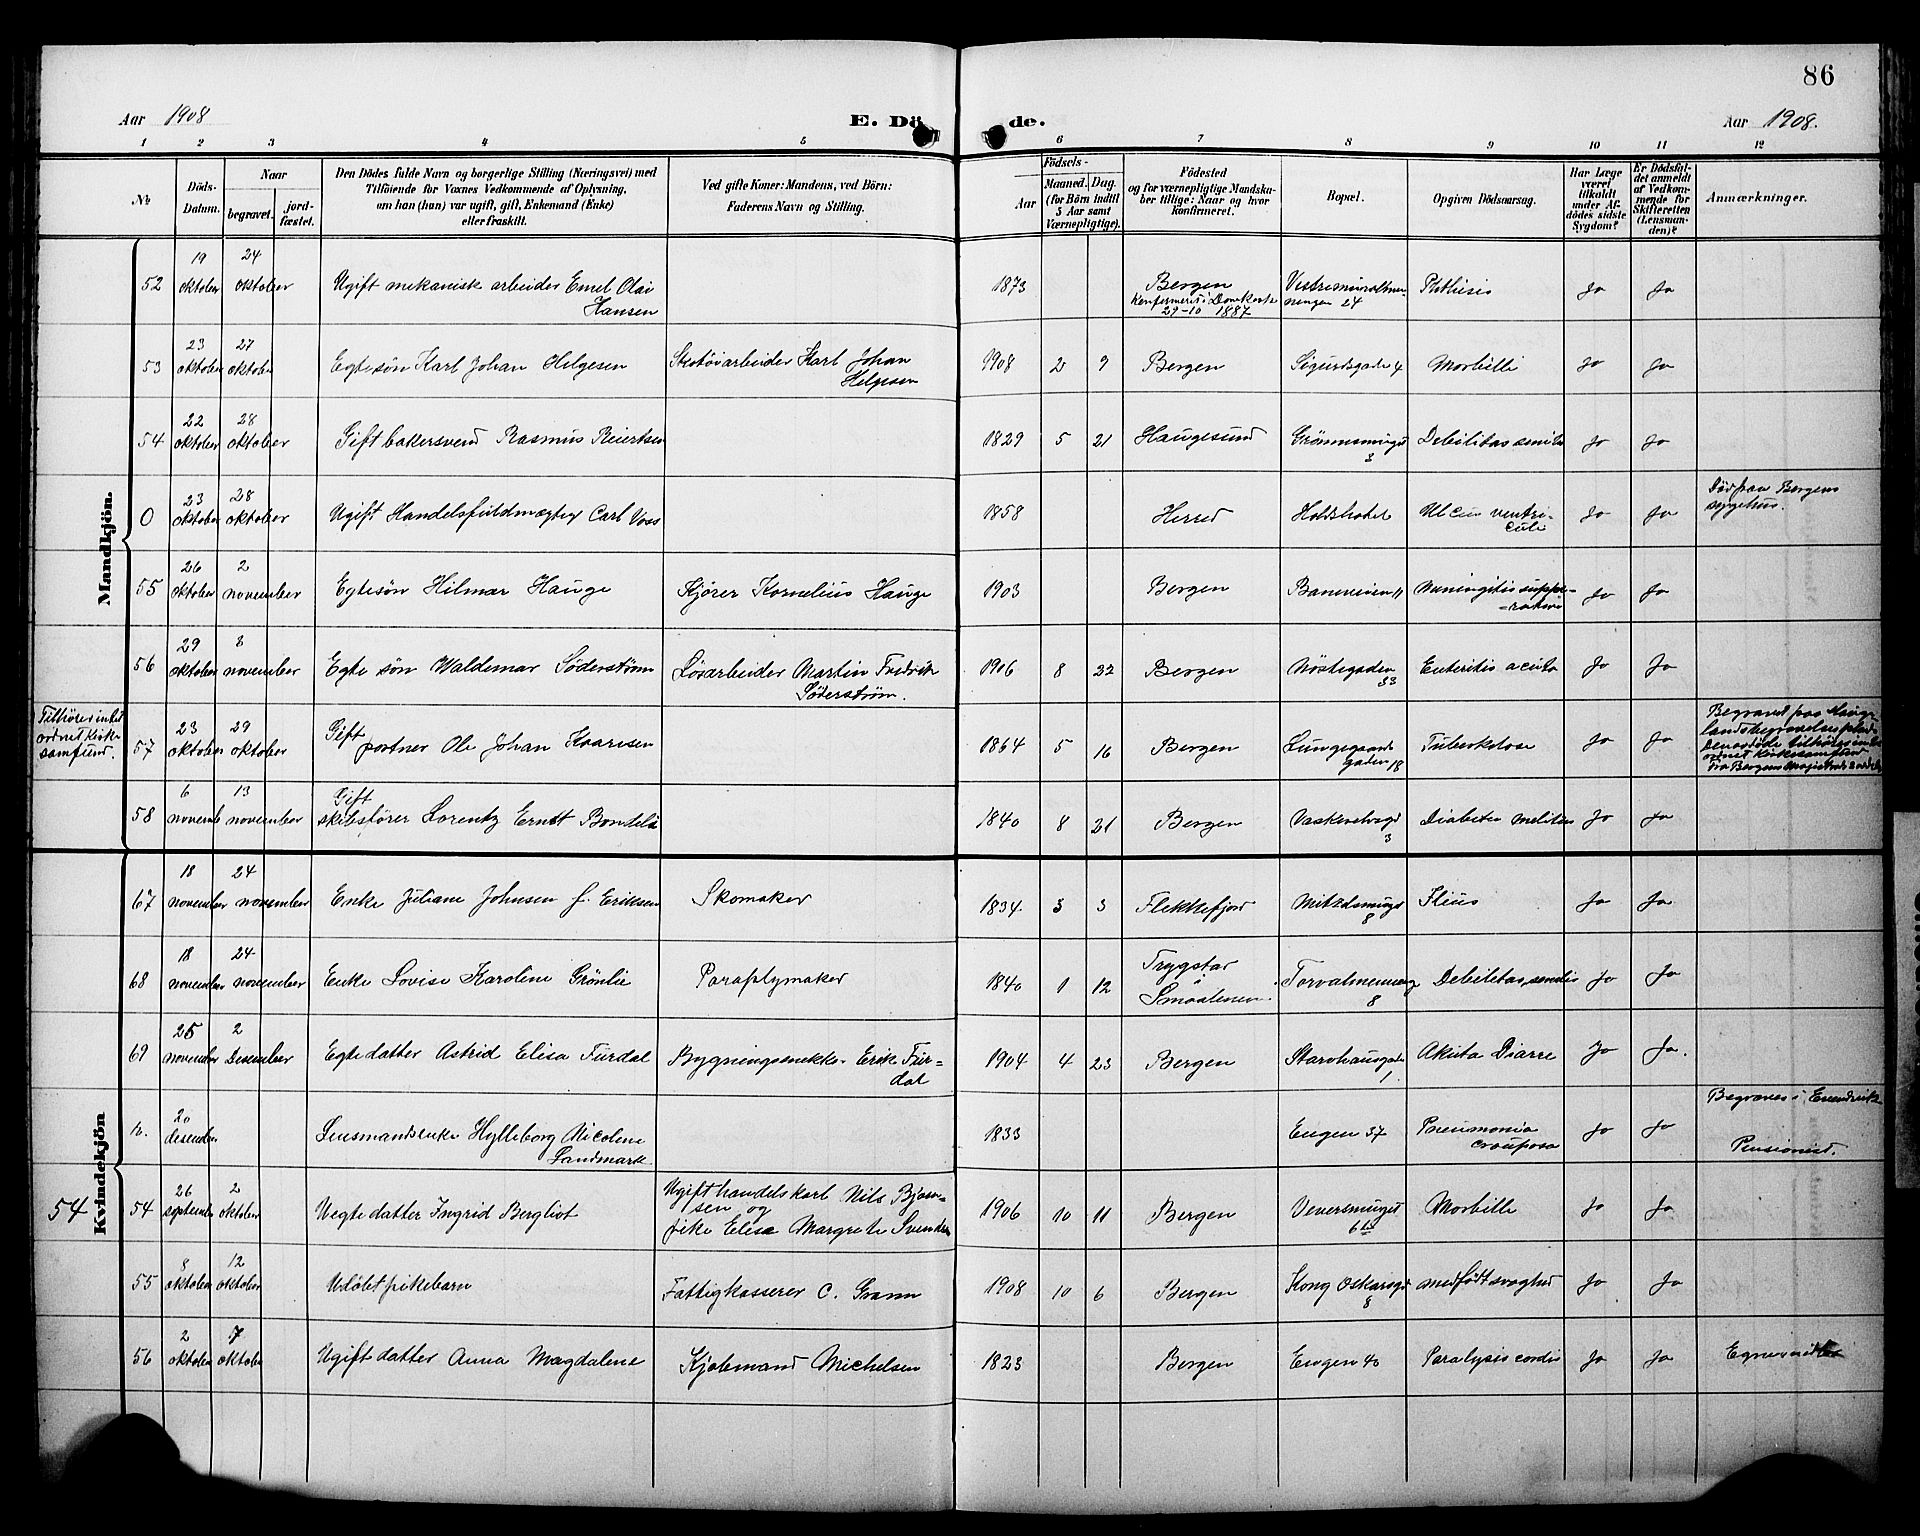 86
Aar 1908
E. Dö de.
Aar 1908.
1 2 3 4 5 6 7 8 9 10 11 12
No
Döds-Datum.
Naar
begravet.
jord-fæstet.
Den Dödes fulde Navn og borgerlige Stilling (Næringsvei) med
Tilföiende for Voxnes Vedkommende af Oplysning,
om han (hun) var ugift, gift, Enkemand (Enke)
eller fraskilt.
Ved gifte Koner: Mandens, ved Börn:
Faderens Navn og Stilling.
Födsels-
Aar
Maaned. Dag.
(for Börn indtil
5 Aar samt
Værnepligtige).
Födested
og for værnepligtige Mandska-
ber tillige: Naar og hvor
Konfirmeret.
Bopæl.
Opgiven Dödsaarsag.
Har Læge
været
tilkaldt
under Af-
dödes sidste
Sygdom?
Er Dödsfal-
det anmeldt
af Vedkom-
mende for
Skifteretten
(Lensman-
den)?
Anmærkninger.
Mandkjön.
52 19 oktober 24 oktober Ugift mekanisk arbeider Emil Olai Hansen 1873 Bergen Konfirmert i Domkirke 29-10 1887 24 Phthisis Jo Jo
53 23 oktober 27 oktober Egtesøn Karl Johan Helgesen Skotøiarbeider Karl Johan Helgesen 1908 2 9 Bergen Sigurdsgade 4 Morbilli Jo Jo
54 22 oktober 28 oktober Gift bakersvend Rasmus Reiertsen 1829 5 21 Haugesund 3 Debilitas senilis Jo Jo
0 23 oktober 28 oktober Ugift Handelsfuldmægtig Carl Voss 1858 Herred Holdshotel Ulcus ventriculi Jo Jo Død paa Bergens sygehus.
55 26 oktober 2 november Egtesøn Hilmar Hauge Kjører Kornelius Hauge 1903 Bergen 11 Jo Jo
56 29 oktober 8 november Egte søn Waldemar Søderstrøm Løsarbeider Martin Fredrik Søderstrøm. 1906 8 22 Bergen Nøstegaden 33 Enteritis acuta Jo Jo
Tilhører intet ordnet kirkesamfund.
57 23 oktober 29 oktober Gift portner Ole Johan Kaarisen 1864 5 16 Bergen Lungegaardsgaden 18 Tuberkulose Jo Jo Begravet paa
58 6 november 13 november Gift skibsfører Lorentz Ernst 1840 8 21 Bergen 3 Diabetes melitus Jo Jo
Kvindekjön
67 18 november 24 november Enke Juliane Johnsen f. Eriksen Skomaker 1834. 3 3 Flekkefjord 8 Ileus Jo Jo
68 18 november 24 november Enke Lovise Karoline Grønlie Paraplymaker 1840 1 12 Trygstad Smaalenen. Torvalmenning 8 Debilitas senilis Jo Jo
69 25 november 2 Desember Egte datter Astrid Elisa Furdal Bygningssnekker Erik Furdal 1904 4 23 Bergen Starvhusgaden 1 Akuta Diarre Jo Jo.
20 desember Lensmandsenke Hylleborg Nicoline Landmark. 1833 Engen 37 Pneumonia crouposa Jo Jo Begraves i Eivindvik Pensionist.
54 54 26 september 2 oktober Uegte datter Ingrid Bergliot Ugift handelskarl Nils Bjørnsen og pike Elise Margrete Svendsen 1906 10 11 Bergen Veversmuget 6 Morbilli Jo Jo
55 8 oktober 12 oktober Udøbt pikebarn Fattigkasserer C. Gram 1908 10 6 Bergen Kong Oskarsgd 8 medfødt svaghed Jo Jo
56 2 oktober 7 oktober Ugift datter Anna Magdalene Kjøbmand Michelsen 1823 Bergen Engen 40 Paralysis cordis Jo Jo